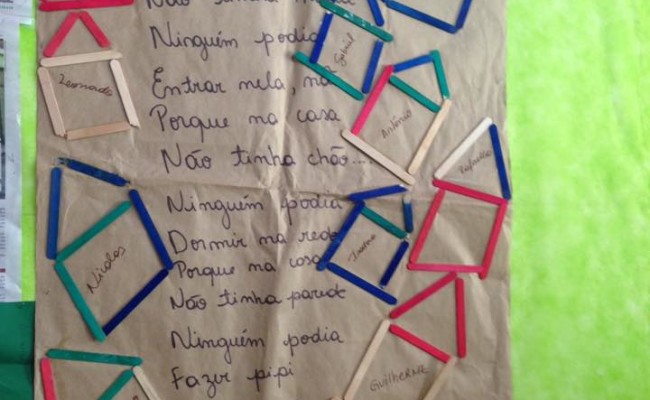 Ninguém podia
Entrar nela, não
Porque na casa
Não tinha chão...
Ninguém podia
Dormir na rede
Porque na casa
Não tinha parede
Ninguém podia
Fazer pipi
Leonardo
Gabriel
Antônio
Rafaella
Nicolas
Guilherme